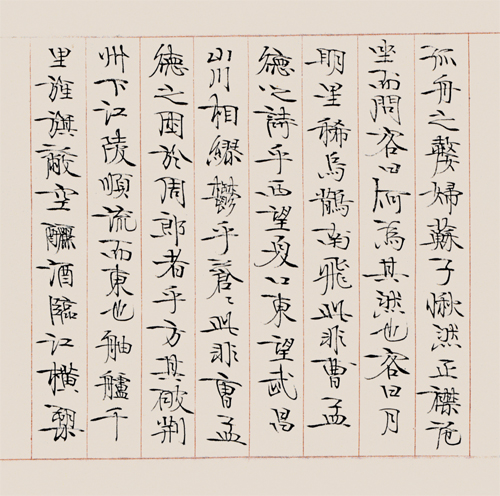 孤舟之嫠婦蘇子愀然正襟危
坐而問客曰何為其然也客曰月
明星稀烏鵲南飛此非曹孟
德之詩乎西望夏口東望武昌
山川相繆鬱乎蒼〻此非曹孟
德之困於周郎者乎方其破荆
州下江陵順流而東也舳艫千
里旌旗蔽空釃酒臨江橫槊